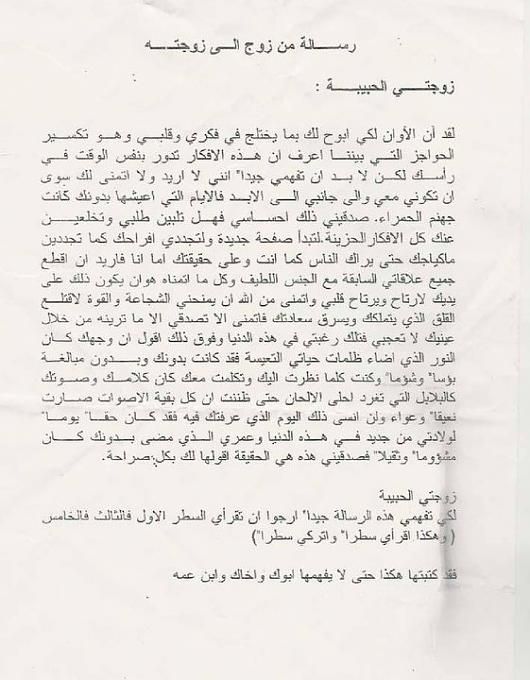 رســـالة من زوج الـــى زوجتـــه
زوجتـــي الحبيبـــة :
لقد أن الأوان لكي ابوح لك بما يختلج في فكري وقلبي وهو تكسير
الحواجز التي بيننا اعرف ان هذه الافكار تدور بنفس الوقت في
رأسك لكن لا بد ان تفهمي جيدا" انني لا اريد ولا اتمنى لك سوى
ان تكوني معي والى جانبي الى الابد فالايام التي اعيشها بدونك كانت
جهنم الحمراء. صدقيني ذلك احساسي فهل تلبين طلبي وتخلعين
عنك كل الافكار الحزينة.لتبدأ صفحة جديدة ولتجددي افراحك كما تجددين
ماكياجك حتى يراك الناس كما انت وعلي حقيقتك اما انا فاريد ان اقطع
جميع علاقاتي السابقة مع الجنس اللطيف وكل ما اتمناه هوان يكون ذلك على
يديك لارتاح ويرتاح قلبي واتمنى من الله ان يمنحني الشجاعة والقوة لاقتلع
القلق الذي يتملكك ويسرق سعادتك فاتمنى الا تصدقي الا ما ترينه من خلال
عينيك لا تعجبي فتلك رغبتي في هذه الدنيا وفوق ذلك اقول ان وجهك كان
النور الذي اضاء ظلمات حياتي التعيسة فقد كانت بدونك وبــدون مبالغة
بؤسا" وشؤما" وكنت كلما نظرت اليك وتكلمت معك كان كلامـك وصـوتك
كالبلابل التي تغرد احلى الالحان حتى ظننت ان كل بقية الاصوات صـارت
نعيقا" وعواء ولن انسى ذلك اليوم الذي عرفتك فيه فقد كـان حقـا" يومـا"
لولادتي من جديد فـي هـذه الدنيا وعمري الـذي مضى بـدونك كـان
مشؤوما" وثقيلا" فصدقيني هذه هي الحقيقة اقولها لك بكل صراحة.
زوجتي الحبيبة
لكي تفهمي هذه الرسالة جيدا" ارجوا ان تقرأي السطر الاول فالثالث فالخامس
( وهكذا اقرأي سطرا" واتركي سطرا")
فقد كتبتها هكذا حتى لا يفهمها ابوك واخاك وابن عمه